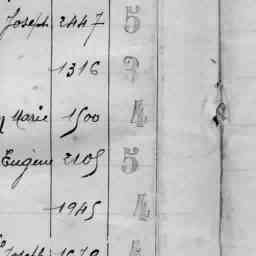 Joseph 2447 5
1316 3
Marie 1500 4
Eugène 2105 5
1945 4
Joseph 1678 4